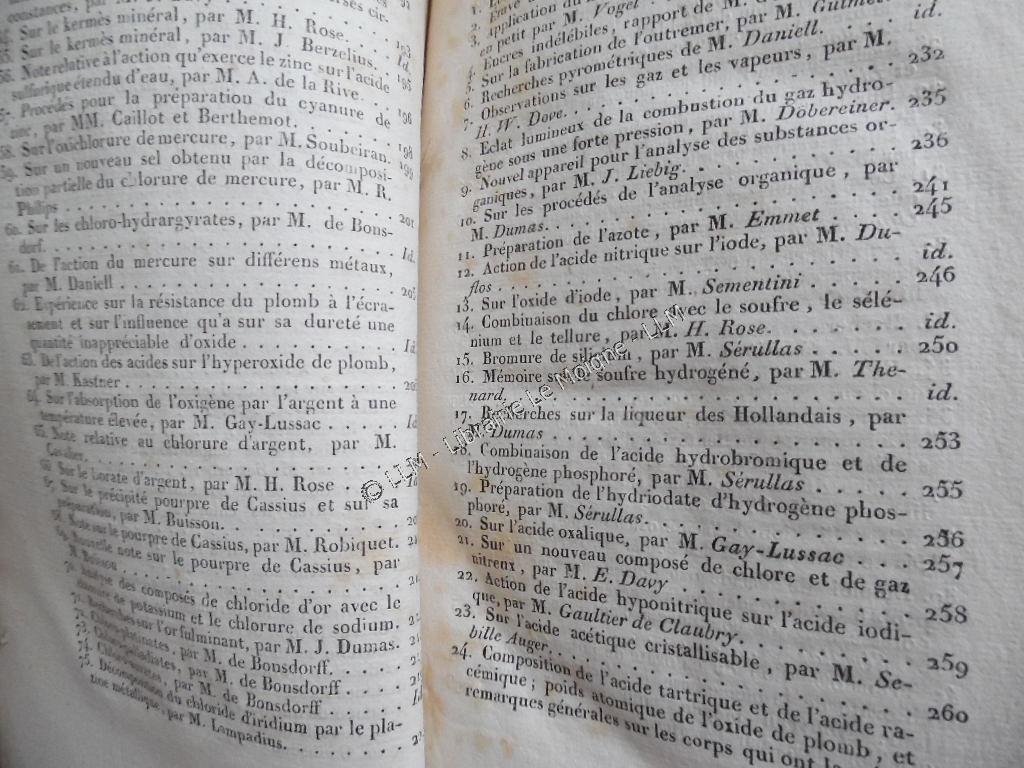 constances, par M.
54. Sur le kermès minéral, par M. H. Rose. 193
55. Sur le kermès minéral, par M. J. Berzelius. Id.
56. Note relative à l'action qu'exerce le zinc sur l'acide
sulfurique étendu d'eau, par M. A. de la Rive.
Procédés pour la préparation du cyanure de
zinc, par MM. Caillot et Berthemot.
58. Sur l'oxichlorure de mercure, par M. Soubeiran. 198
59. Sur un nouveau sel obtenu par la décomposi-
tion partielle du chlorure de mercure, par M. R.
Philips 201
60. Sur les chloro-hydrargyrates, par M. de Bons-
dorf. Id.
De l'action du mercure sur différens métaux,
par M. Daniell
62. Expérience sur la résistance du plomb à l'écra-
sement et sur l'influence qu'a sur sa dureté une
quantité inappréciable d'oxide
63. De l'action des acides sur l'hyperoxide de plomb,
par M. Kastner
64. Sur l'absorption de l'oxigène par l'argent à une
température élevée, par M. Gay-Lussac
65. Note relative au chlorure d'argent, par M.
Cavalier.
66. Sur le borate d'argent, par M. H. Rose
67. Sur le précipité pourpre de Cassius et sur sa
préparation, par M. Buisson.
68. Note sur le pourpre de Cassius, par M. Robiquet.
69. Nouvelle note sur le pourpre de Cassius, par
M. Buisson
70. Analyse des composés de chloride d'or avec le
chlorure de potassium et le chlorure de sodium.
71. Recherches sur l'or fulminant, par M. J. Dumas.
72. Chloro-platinates, par M. de Bonsdorff.
73. par M. de Bonsdorff
74. par M. de Bonsdorff
75. Décomposition du chloride d'iridium par le pla-
tine métallique, par M. Lampadius.
3. Application du
en petit par M. Vogel
4. Encres indélébiles, rapport de M.
5. Sur la fabrication de l'outremer, par M. Guimet id.
6. Recherches pyrométriques de M. Daniell.
7. Observations sur les gaz et les vapeurs, par M.
H. W. Dove. 232
8. Eclat lumineux de la combustion du gaz hydro-
gène sous une forte pression, par M. Döbereiner. 235
9. Nouvel appareil pour l'analyse des substances or-
ganiques, par M. J. Liebig. 236
10. Sur les procédés de l'analyse organique, par
M. Dumas. 241
11. Préparation de l'azote, par M. Emmet 245
12. Action de l'acide nitrique sur l'iode, par M. Du-
flos id.
13. Sur l'oxide d'iode, par M. Sementini 246
14. Combinaison du chlore avec le soufre, le sélé-
nium et le tellure, par M. H. Rose. id.
15. Bromure de silicium, par M. Sérullas 250
16. Mémoire sur le soufre hydrogéné, par M. The-
nard, id.
17. Recherches sur la liqueur des Hollandais, par
M. Dumas 253
18. Combinaison de l'acide hydrobromique et de
l'hydrogène phosphoré, par M. Sérullas 255
19. Préparation de l'hydriodate d'hydrogène phos-
phoré, par M. Sérullas. 256
20. Sur l'acide oxalique, par M. Gay-Lussac 257
21. Sur un nouveau composé de chlore et de gaz
nitreux, par M. E. Davy 258
22. Action de l'acide hyponitrique sur l'acide iodi-
que, par M. Gaultier de Claubry. 259
23. Sur l'acide acétique cristallisable, par M. Se-
bille Auger. 260
24. Composition de l'acide tartrique et de l'acide ra-
cémique; poids atomique de l'oxide de plomb, et
remarques générales sur les corps qui ont
© LLM - Librairie Le Molone - LLM